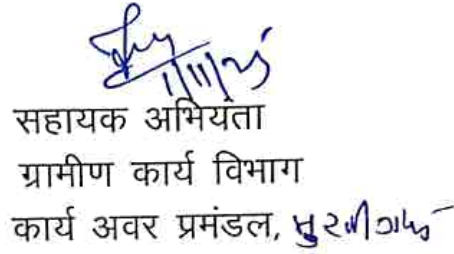 1/11/25
सहायक अभियंता
ग्रामीण कार्य विभाग
कार्य अवर प्रमंडल, मुरलीगंज